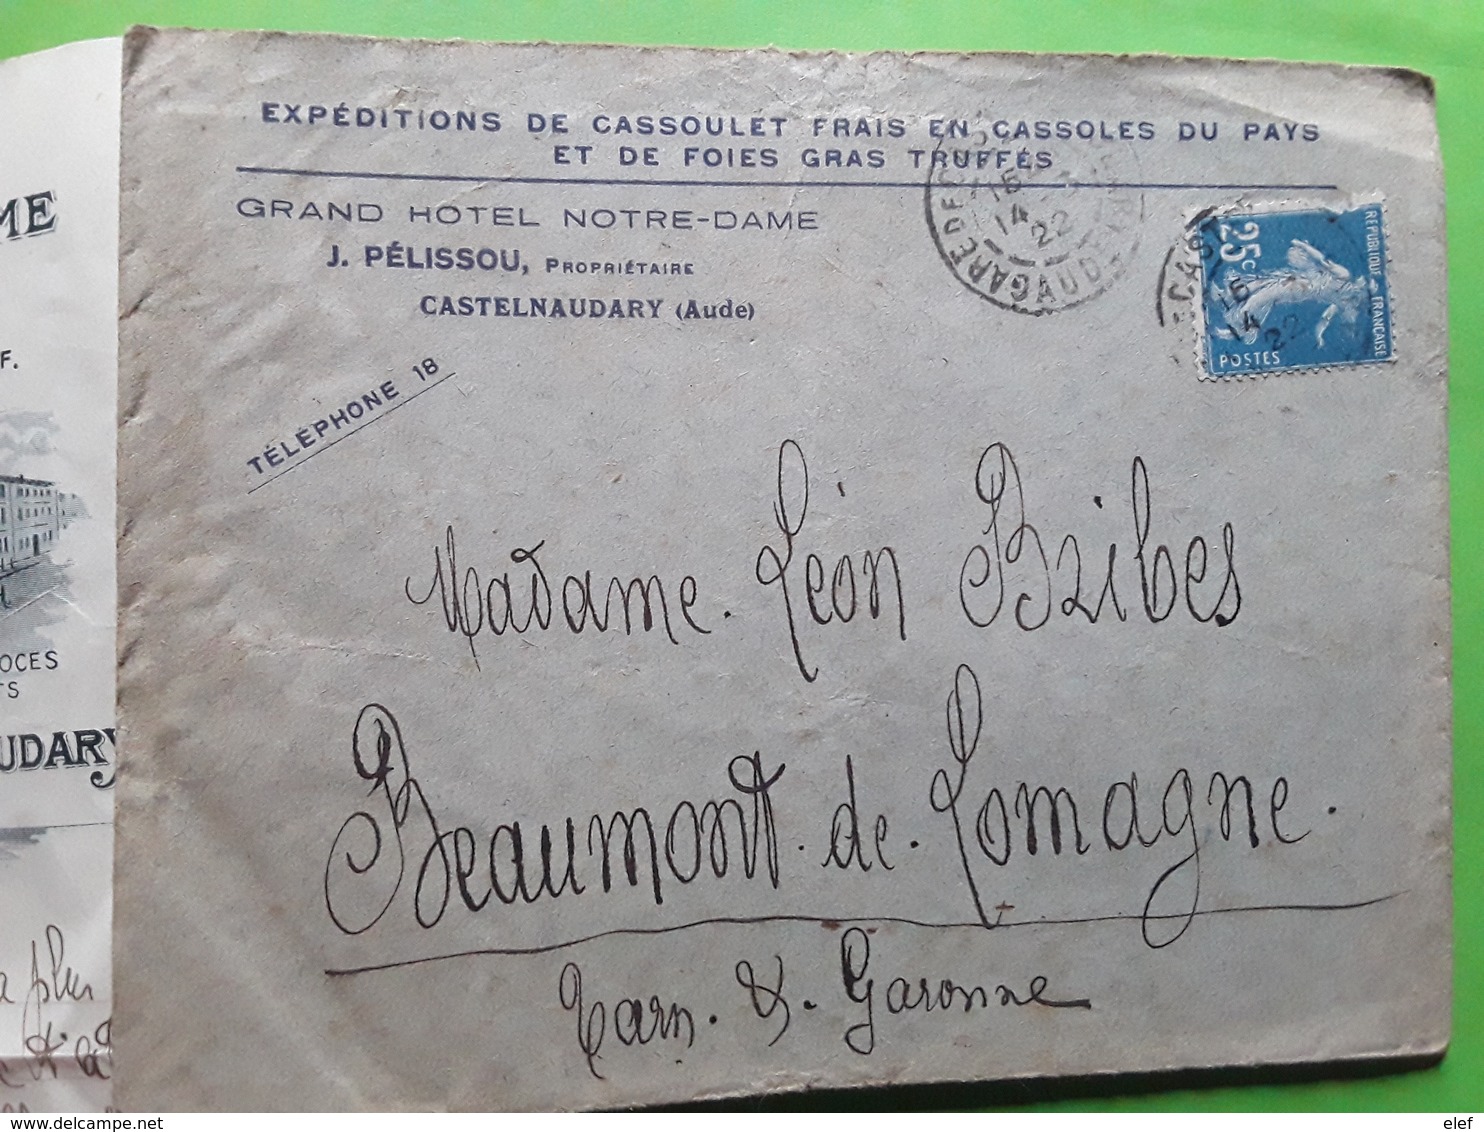 EXPÉDITIONS DE CASSOULET FRAIS EN CASSOLES DU PAYS
ET DE FOIES GRAS TRUFFÉS
GRAND HOTEL NOTRE-DAME
J. PÉLISSOU, PROPRIÉTAIRE
CASTELNAUDARY (Aude)
TÉLÉPHONE 18
GARE DE
AUDE
15
14
22
CAST
15
14
22
25c
REPUBLIQUE FRANÇAISE
POSTES
Madame. Léon Bribes
Beaumont. de. Lomagne.
Tarn. &. Garonne
ME
F.
OCES
TS
UDARY
plus
delcampe.net
elef